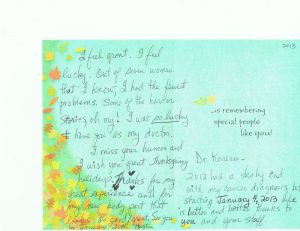 2013
I feel great. I feel
lucky. Out of seven women
that I know, I had the fewest
problems. Some of the horror
stories oh my! I was so lucky
to have you as my doctor.
I miss your humor and
I wish you great Thanksgiving
holiday! Thanks for my
great experience and for
my new body suit that
...is remembering
special people
like you!
2013 had a shaky end
with my cancer diagnosis but
starting January 9, 2013 life
is better and better thanks to
you and your staff